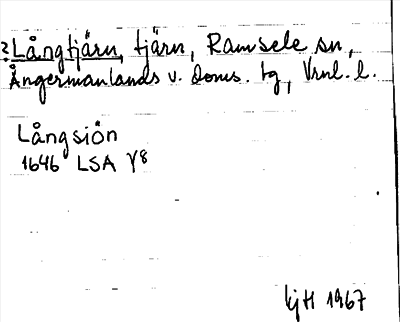 ? Långtjärn, tjärn, Ramsele sn,
Ångermanlands v. doms. tg, Vrnl. l.
Långsiön
1646 LSA Y8
kjH 1967